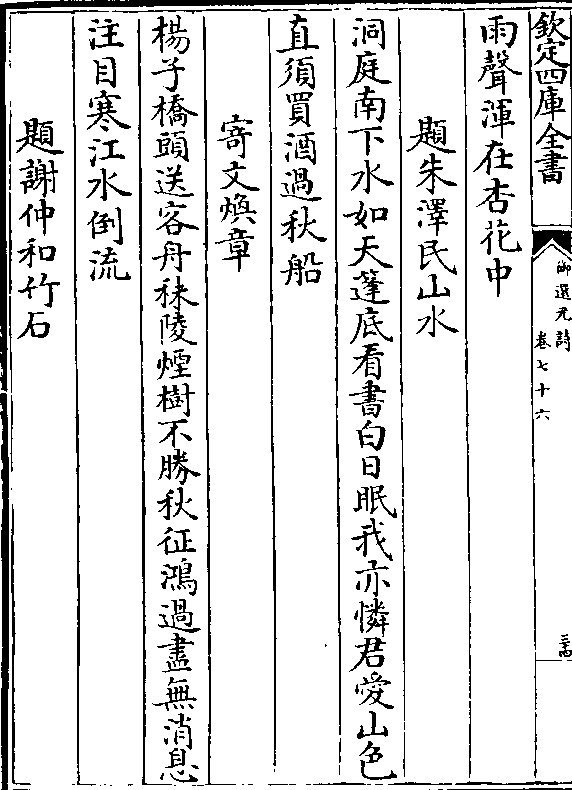 欽定四庫全書
御選元詩
卷七十六
三十四
雨聲渾在杏花中
題朱澤民山水
洞庭南下水如天蓬底看書白日眠我亦憐君愛山色
直須買酒過秋船
寄文煥章
楊子橋頭送客舟秣陵煙樹不勝秋征鴻過盡無消息
注目寒江水倒流
題謝仲和竹石